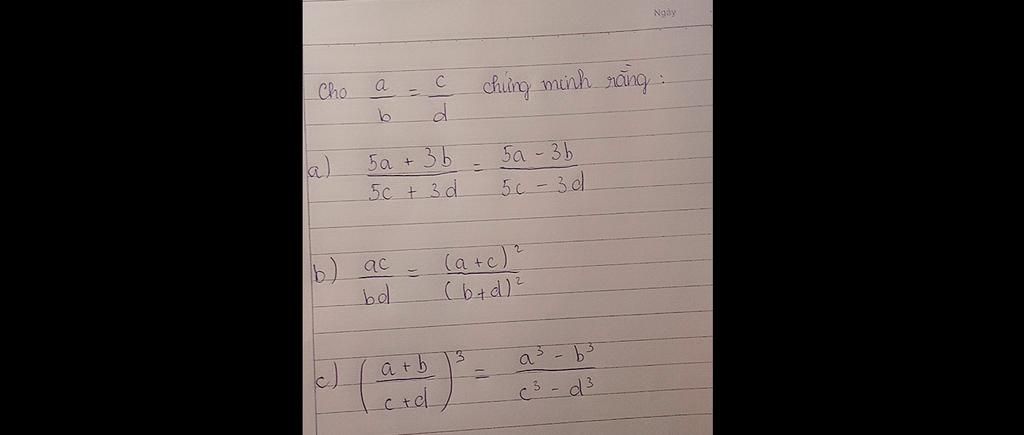 Ngày
Cho a/b = c/d chứng minh rằng :
a) (5a + 3b)/(5c + 3d) = (5a - 3b)/(5c - 3d)
b) ac/bd = (a+c)²/(b+d)²
c) ((a+b)/(c+d))³ = (a³ - b³)/(c³ - d³)